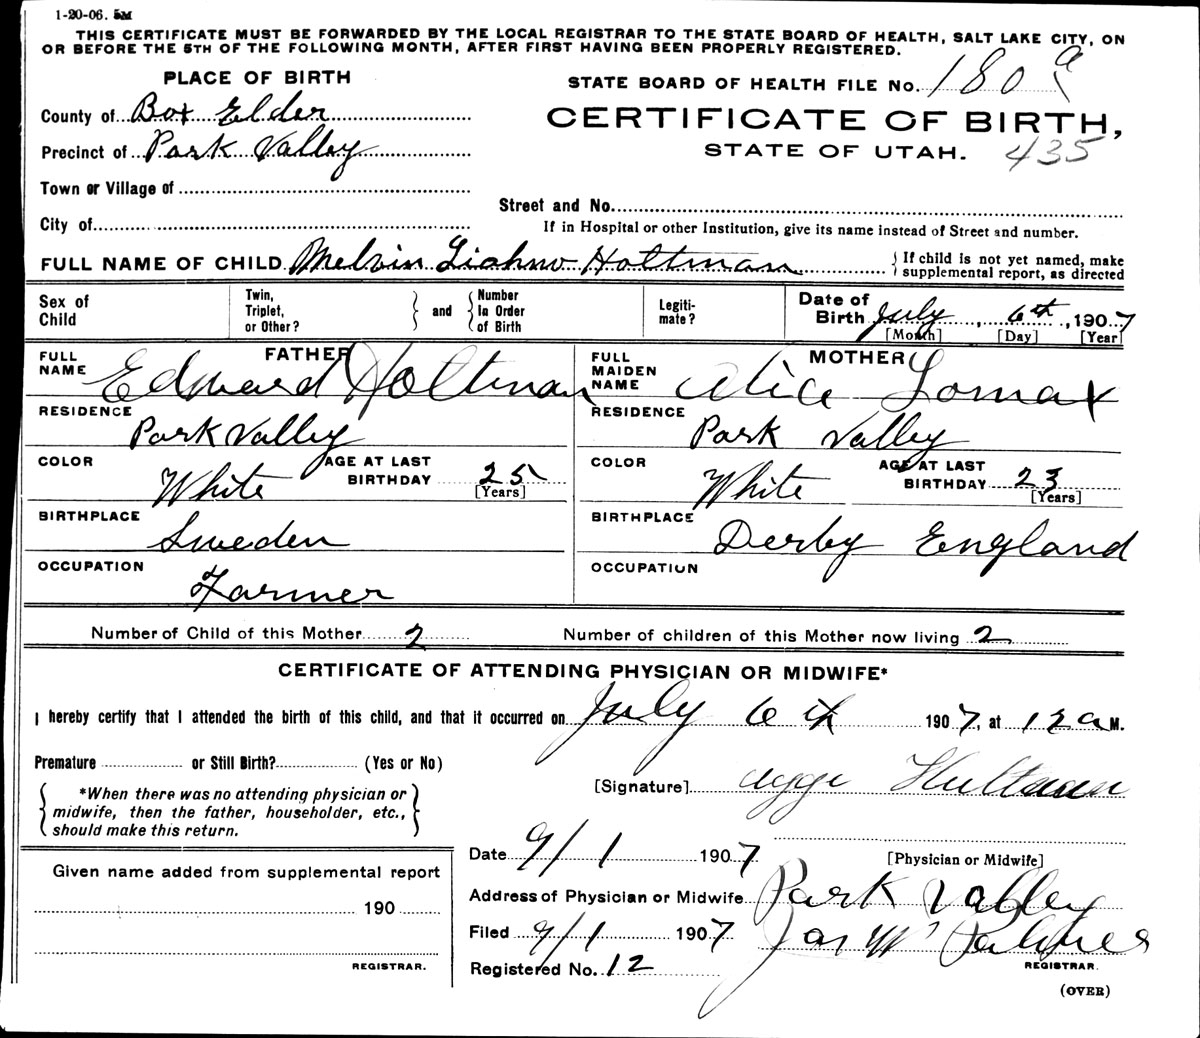 1-20-06. 5M
THIS CERTIFICATE MUST BE FORWARDED BY THE LOCAL REGISTRAR TO THE STATE BOARD OF HEALTH, SALT LAKE CITY, ON
OR BEFORE THE 5TH OF THE FOLLOWING MONTH, AFTER FIRST HAVING BEEN PROPERLY REGISTERED.
PLACE OF BIRTH
County of Box Elder
Precinct of Park Valley
Town or Village of
City of
STATE BOARD OF HEALTH FILE No. 1809
CERTIFICATE OF BIRTH,
STATE OF UTAH. 435
Street and No.
If in Hospital or other Institution, give its name instead of Street and number.
FULL NAME OF CHILD Melvin Holtman
{ If child is not yet named, make
supplemental report, as directed
Sex of
Child
Twin,
Triplet,
or Other?
} and {
Number
In Order
of Birth
Legiti-
mate?
Date of
Birth July, 6th, 1907
[Month] [Day] [Year]
FATHER
FULL
NAME Edward Holtman
RESIDENCE
Park Valley
COLOR White
AGE AT LAST
BIRTHDAY 25
[Years]
BIRTHPLACE
Sweden
OCCUPATION
Farmer
MOTHER
FULL
MAIDEN
NAME Alice Lomax
RESIDENCE
Park Valley
COLOR White
AGE AT LAST
BIRTHDAY 23
[Years]
BIRTHPLACE
Derby England
OCCUPATION
Number of Child of this Mother 2 Number of children of this Mother now living 2
CERTIFICATE OF ATTENDING PHYSICIAN OR MIDWIFE*
I hereby certify that I attended the birth of this child, and that it occurred on July 6th 1907, at 12 a M.
Premature or Still Birth? (Yes or No)
{ *When there was no attending physician or }
midwife, then the father, householder, etc.,
should make this return.
[Signature] Hultman
Date 9/1 1907
[Physician or Midwife]
Address of Physician or Midwife Park Valley
Filed 9/1 1907 Jas W Palmer
REGISTRAR.
Registered No. 12
(OVER)
Given name added from supplemental report
190
REGISTRAR.